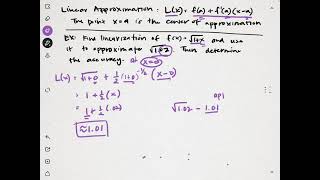 Linear Approximation : L(x) = f(a) + f'(a)(x-a)
The point x=a is the center of approximation
Ex: Find linearization of f(x) = √1+x and use
it to approximate √1.02. Then determine
the accuracy. at x=0
L(x) = √1+0 + 1/2 (1+0)^-1/2 (x-0)
= 1 + 1/2 (x)
= 1 + 1/2 (.02)
≈ 1.01
√1.02 - 1.01